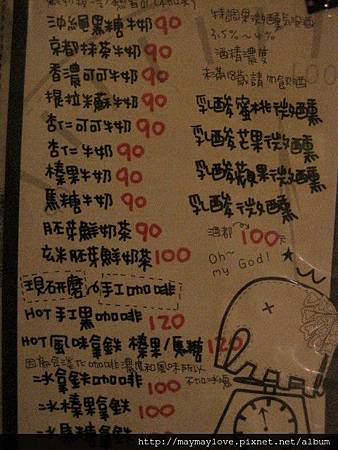 沖繩黑糖牛奶 90
京都抹茶牛奶 90
香濃可可牛奶 90
提拉米蘇牛奶 90
杏仁可可牛奶 90
杏仁牛奶 90
榛果牛奶 90
焦糖牛奶 90
胚芽鮮奶茶 90
玄米胚芽鮮奶茶 100
現研磨 手工咖啡
HOT 手工黑咖啡 120
HOT 風味拿鐵 榛果/焦糖 120
冰拿鐵咖啡 100
冰榛果拿鐵 100
冰焦糖拿鐵
3.5%~4%
酒精濃度
未滿18歲請勿飲酒
乳酸蜜桃微醺
乳酸芒果微醺
乳酸蘋果微醺
乳酸微醺
酒都 100
Oh~
my God!
http://maymaylove.pixnet.net/album